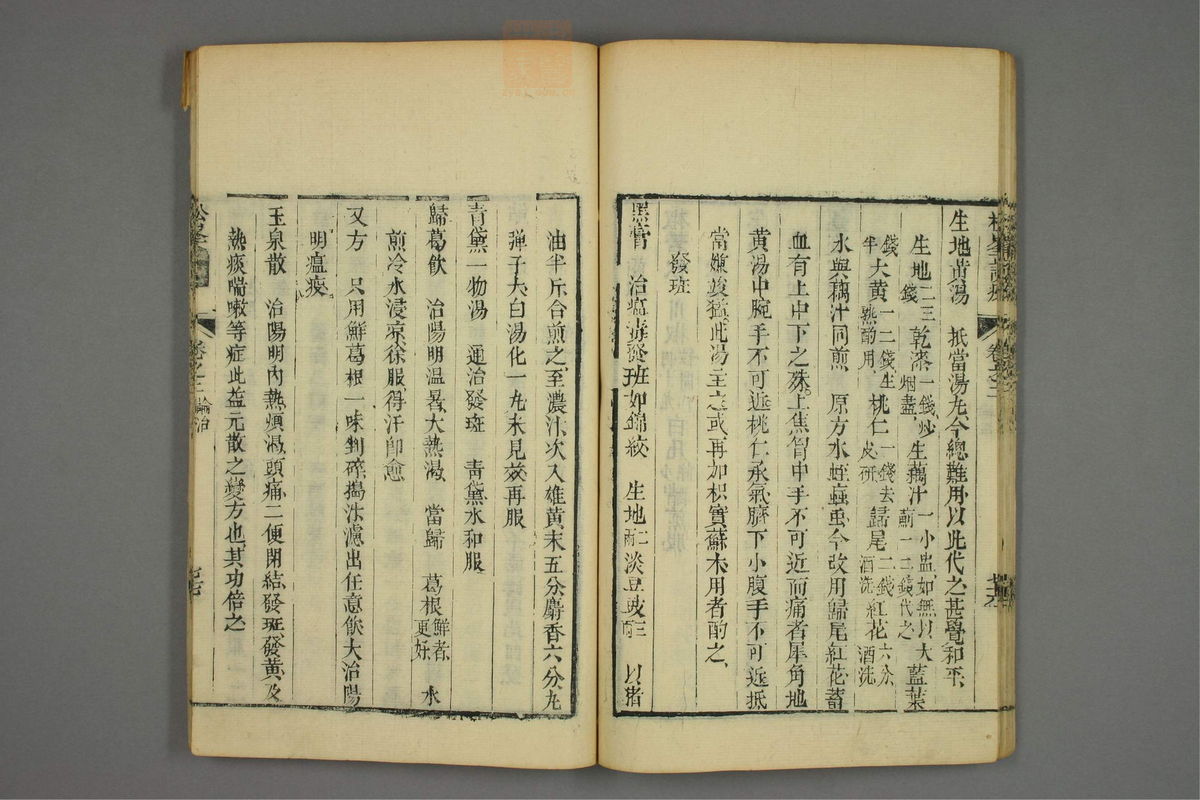 生地黃湯 抵當湯丸今總難用以此代之甚覺和平
生地二三錢乾漆一錢炒烟盡生藕汁一小盅如無以大藍葉
錢半大黃一二錢生熟酌用桃仁一錢去皮研歸尾二錢酒洗紅花六分酒洗
水與藕汁同煎 原方水蛭䖟虫今改用歸尾紅花蓄
血有上中下之殊上焦胷中手不可近而痛者犀角地
黃湯中脘手不可近桃仁承氣臍下小腹手不可近抵
當嫌峻猛此湯主之或再加枳實蘇木用者酌之
發班
黑膏 治瘟毒發班如錦紋 生地二兩淡豆豉三兩 以猪
油半斤合煎之至濃汁次入雄黃末五分麝香六分丸
彈子大白湯化一丸未見效再服
青黛一物湯 通治發斑 青黛水和服
歸葛飲 治陽明温暑大熱渴 當歸 葛根鮮者更妊 水
煎冷水浸凉徐服得汗即愈
又方 只用鮮葛根一味剉碎搗汁濾出任意飲大治陽
明瘟疫
玉泉散 治陽明內熱煩渴頭痛二便閉結發斑發黃及
熱痰喘嗽等症此益元散之變方也其功倍之
卷之二 論治